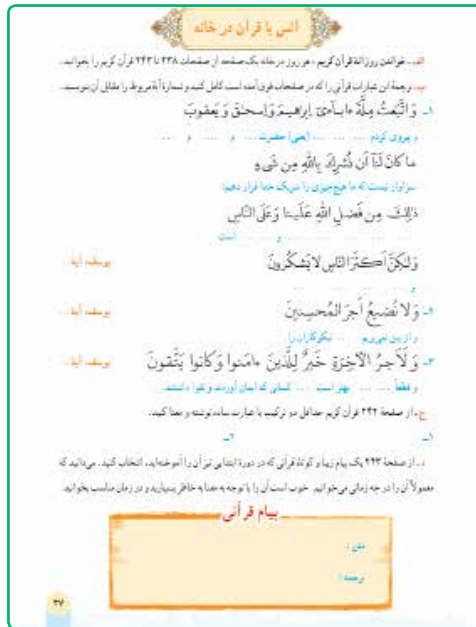 اُنس با قرآن در خانه
الف ـ خواندن روزانهٔ قرآن کریم : هر روز در خانه یک صفحه از صفحات ۲۳۸ تا ۲۴۳ قرآن کریم را بخوانید.
ب ـ ترجمهٔ این عبارات قرآنی را که در صفحات فوق آمده است کامل کنید و شمارهٔ آیهٔ مربوط را مقابل آن بنویسید.
۱ـ وَ اتَّبَعتُ مِلَّةَ ءاباءی اِبراهیمَ وَ اِسحٰقَ وَ یَعقوبَ
و پیروی کردم ... ... ... (یعنی) حضرت ... و ... و ...
ما کانَ لَنا اَن نُشرِکَ بِاللهِ مِن شَیءٍ
سزاوار نیست که ما هیچ‌چیزی را شریک خدا قرار دهیم؛
ذٰلِکَ مِن فَضلِ اللهِ عَلَینا وَ عَلَی النّاسِ
... ... ... ... و ... ... است
وَلٰکِنَّ اَکثَرَ النّاسِ لا یَشکُرونَ یوسف، آیهٔ ...
و ... ... ... ...
۲ـ وَ لا نُضیعُ اَجرَ المُحسِنینَ یوسف، آیهٔ ...
و از بین نمی‌بریم ... نیکوکاران را
۳ـ وَ لَاَجرُ الآخِرَةِ خَیرٌ لِلَّذینَ ءامَنوا وَ کانوا یَتَّقونَ یوسف، آیهٔ ...
و قطعاً ... ... بهتر است ... کسانی که ایمان آوردند و تقوا داشتند.
ج ـ از صفحهٔ ۲۴۲ قرآن کریم حداقل دو ترکیب یا عبارت ساده نوشته و معنا کنید.
۱ـ ۲ـ
د ـ از صفحهٔ ۲۴۳ یک پیام زیبا و کوتاه قرآنی که در دورهٔ ابتدایی نیز آن را آموخته‌اید، انتخاب کنید. می‌دانید که
معمولاً آن را در چه زمانی می‌خوانیم. خوب است آن را با توجه به معنا به خاطر بسپارید و در زمان مناسب بخوانید.
پیام قرآنی
متن :
ترجمه :
۳۷